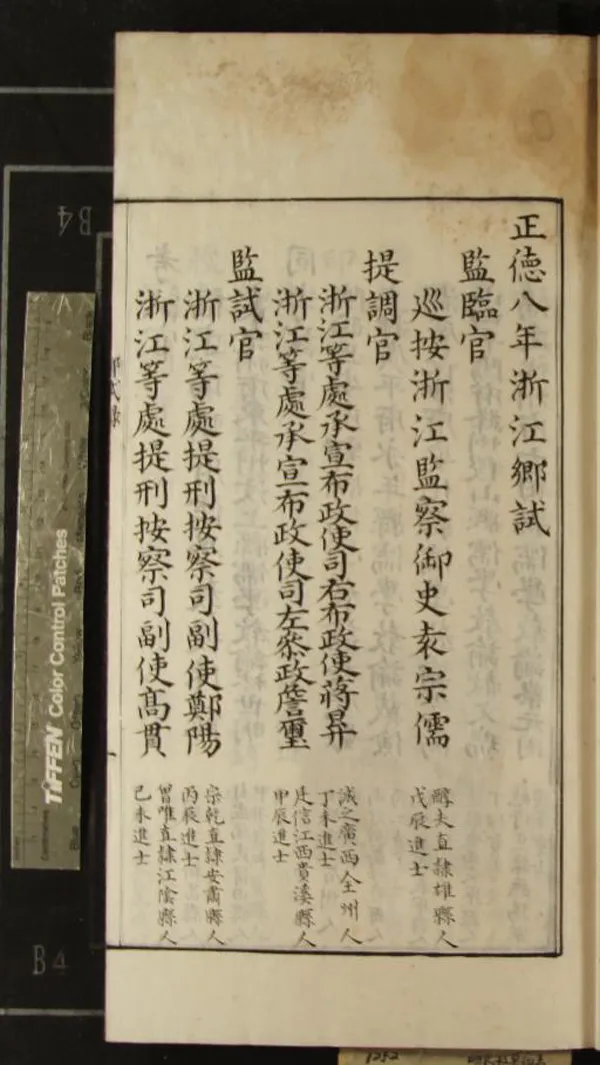 正德八年浙江鄉試
監臨官
巡按浙江監察御史袁宗儒
醇夫直隸雄縣人
戊辰進士
提調官
浙江等處承宣布政使司右布政使蔣昇
誠之廣西全州人
丁未進士
浙江等處承宣布政使司左叅政詹璽
廷信江西貴溪縣人
甲辰進士
監試官
浙江等處提刑按察司副使鄭陽
宗乾直隸安肅縣人
丙辰進士
浙江等處提刑按察司副使高貫
曾唯直隸江陰縣人
己未進士
一
B4
B4
TIFFEN Color Control Patches